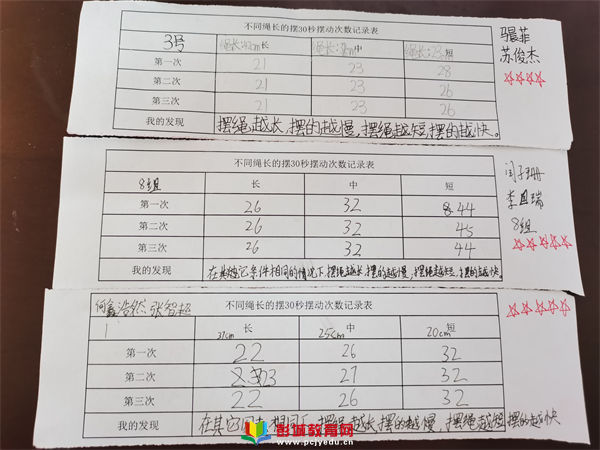 不同绳长的摆30秒摆动次数记录表
3号 绳长:42cm长 绳长: cm中 绳长:23cm短
第一次 21 23 28
第二次 21 23 26
第三次 21 23 26
我的发现 摆绳越长,摆的越慢,摆绳越短,摆的越快。
骎菲
苏俊杰
☆☆☆☆
不同绳长的摆30秒摆动次数记录表
8组 长 中 短
第一次 26 32 44
第二次 26 32 45
第三次 26 32 44
我的发现 在其他条件相同的情况下,摆绳越长,摆的越慢,摆绳越短,摆的越快。
闫子珊
李国瑞
8组
☆☆☆☆☆
何鑫浩然 张智超 不同绳长的摆30秒摆动次数记录表
1 37cm长 25cm中 20cm短
第一次 22 26 32
第二次 23 27 32
第三次 22 26 32
我的发现 在其它 相同下,摆绳越长摆的越慢,摆绳越短摆的越快
☆☆☆☆
彭城教育网
www.pcjyedu.cn